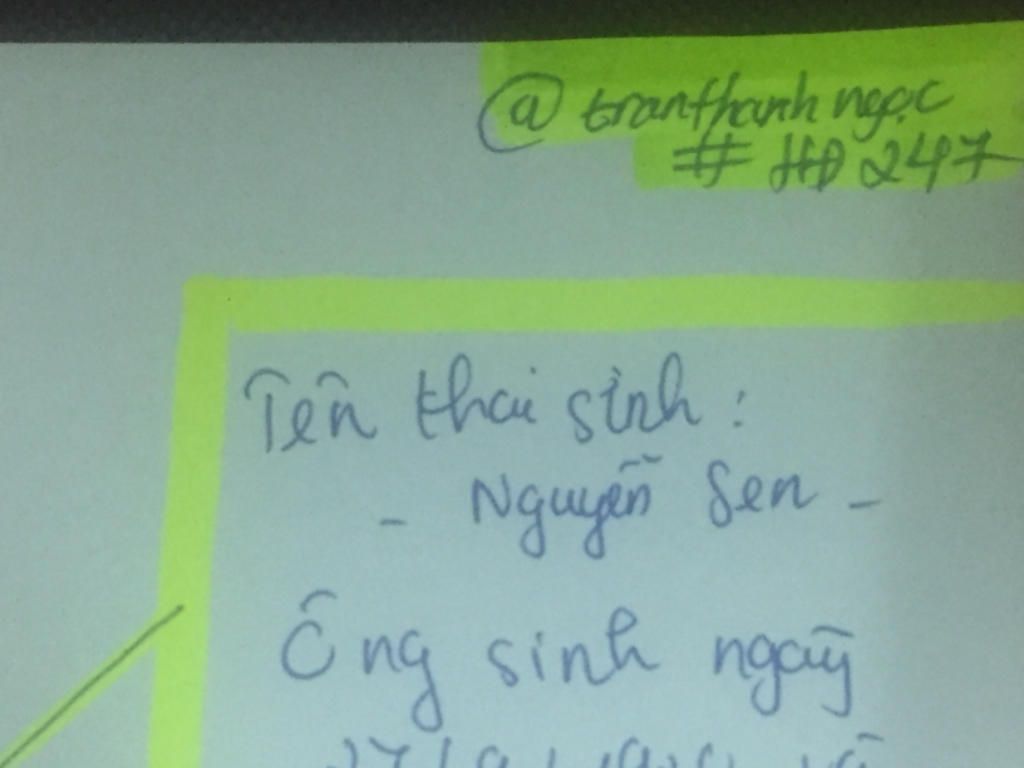 @tranthanhngọc
#HD247
Tên thai sinh:
- Nguyễn Sen -
Ông sinh ngày